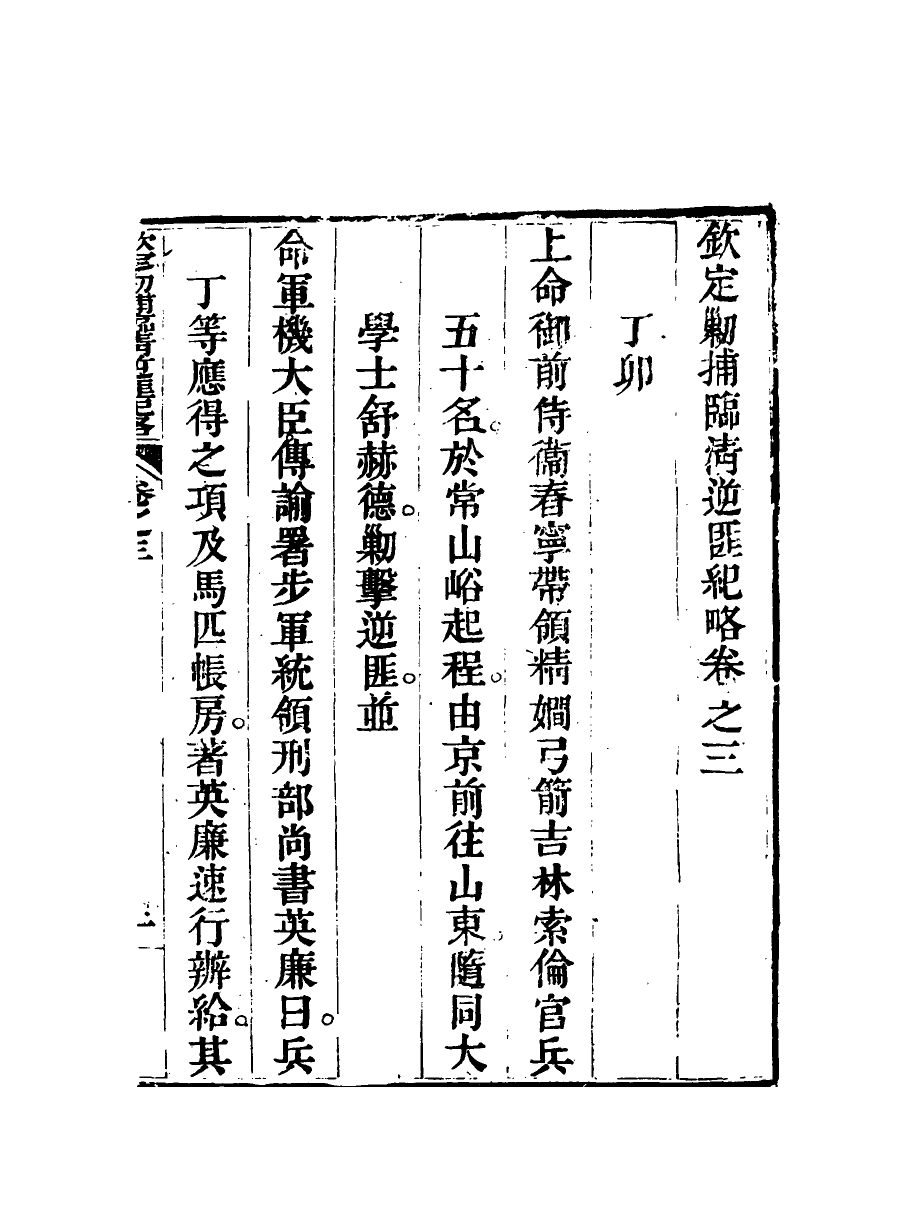 欽定剿捕臨清逆匪紀略卷之三
丁卯
上命御前侍衞春寧帶領精嫺弓箭吉林索倫官兵
五十名。於常山峪起程。由京前往山東。隨同大
學士舒赫德。剿擊逆匪。並
命軍機大臣傳諭署步軍統領刑部尚書英廉曰。兵
丁等應得之項及馬匹帳房。著英廉速行辦給。其
卷三